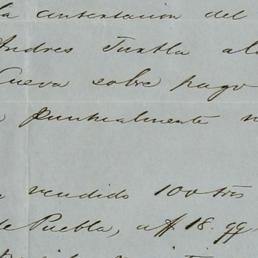 la contestacion del
Andres Tuxtla al
Cueva sobre pago
puntualmente
vendido 100
de Puebla, a $ 18.